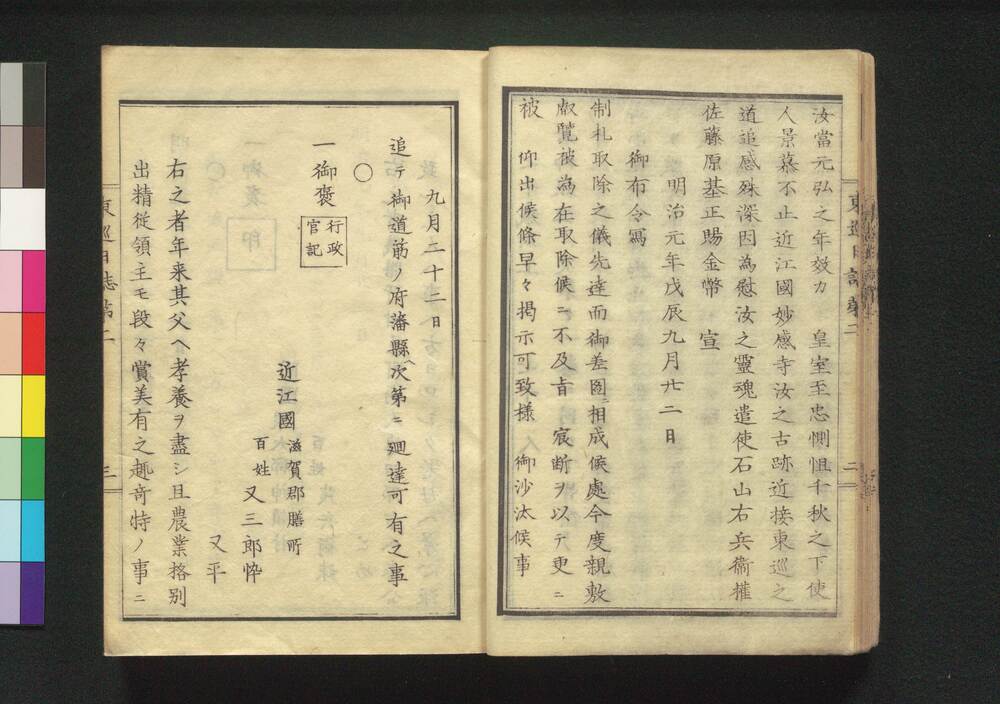 汝當元弘之年效力　皇室至忠惻怛千秋之下使
人景慕不止近江國妙感寺汝之古跡近接東巡之
道追感殊深因為慰汝之靈魂遣使石山右兵衞權
佐藤原基正賜金幣　宣
明治元年戊辰九月廿二日
御布令寫
制札取除之儀先達而御差圖ニ相成候處今度親敷
叡覽被為在取除候ニ不及旨　宸斷ヲ以テ更ニ
被　仰出候條早々揭示可致樣　御沙汰候事
東巡日誌第二
二
九月二十二日
追テ御道筋ノ府藩縣ヘ次第ニ廻達可有之事
○
一御褒
行政
官記
近江國
滋賀郡膳所
百姓
又三郎悴
又平
右之者年来其父ヘ孝養ヲ盡シ且農業格別
出精從領主モ段々賞美有之趣奇特ノ事ニ
東巡日誌第二
三